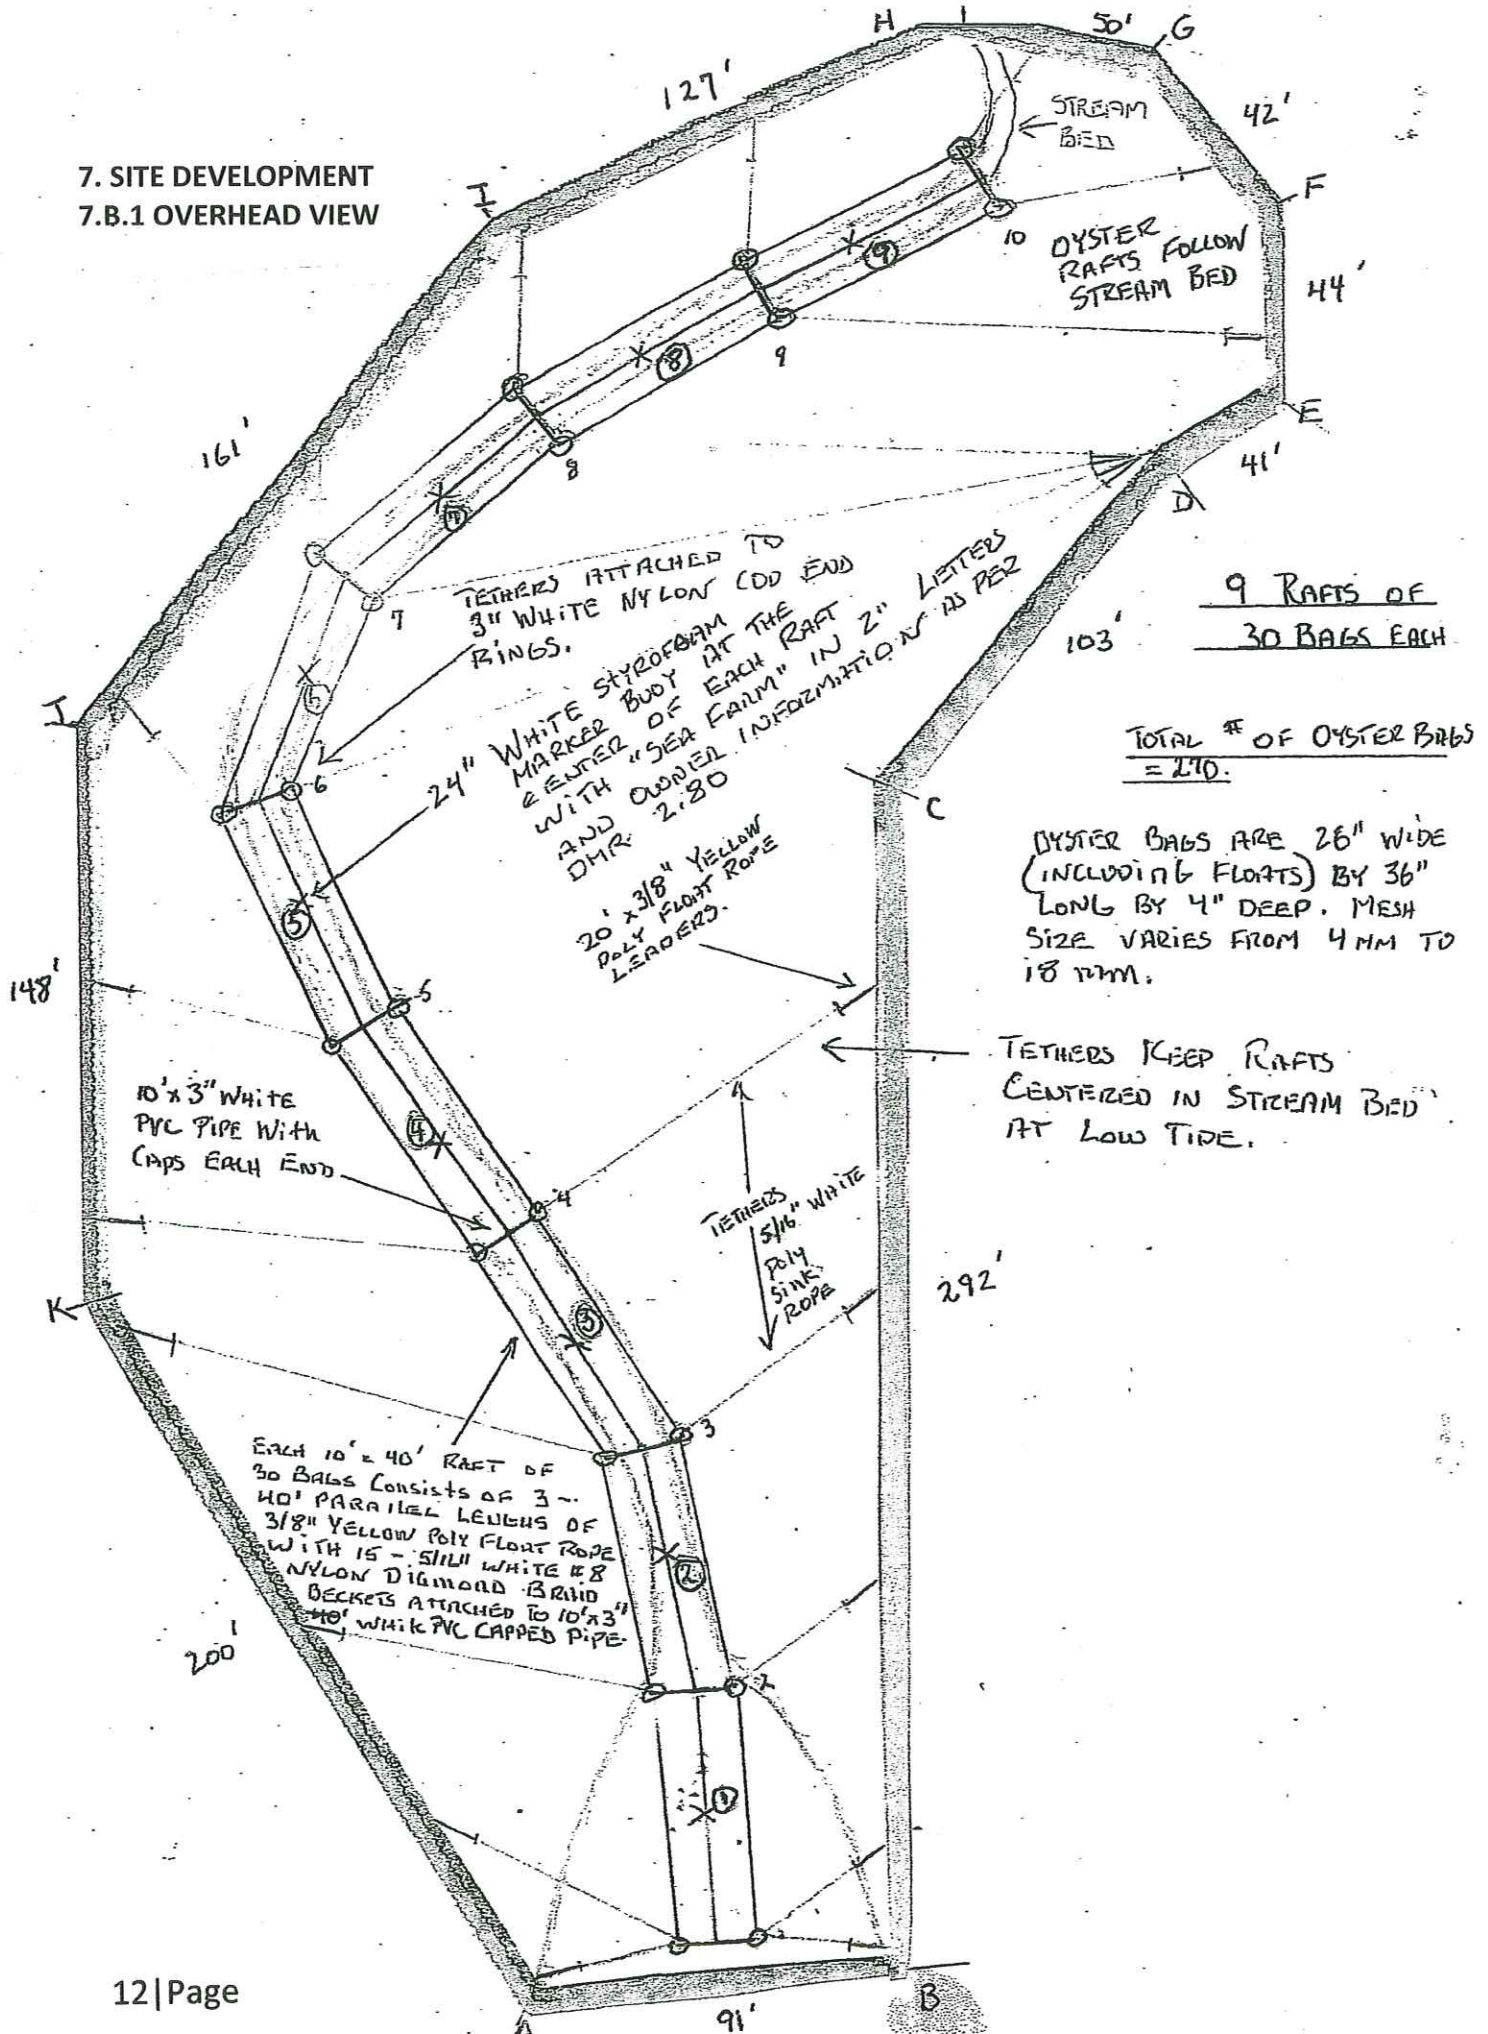 7. SITE DEVELOPMENT
7.B.1 OVERHEAD VIEW
H
50'
G
127'
42'
STREAM
BED
F
I
10
OYSTER
RAFTS FOLLOW
STREAM BED
44'
9
9
8
E
161'
8
41'
D
7
7
TETHERS ATTACHED TO
3" WHITE NYLON COD END
RINGS.
24" WHITE STYROFOAM
MARKER BUOY AT THE
CENTER OF EACH RAFT
WITH "SEA FARM" IN 2" LETTERS
AND OWNER INFORMATION AS PER
DMR 2.80
9 RAFTS OF
30 BAGS EACH
103'
J
6
6
TOTAL # OF OYSTER BAGS
= 270.
C
OYSTER BAGS ARE 26" WIDE
(INCLUDING FLOATS) BY 36"
LONG BY 4" DEEP. MESH
SIZE VARIES FROM 4 MM TO
18 MM.
20' x 3/8" YELLOW
POLY FLOAT ROPE
LEADERS.
5
5
148'
TETHERS KEEP RAFTS
CENTERED IN STREAM BED
AT LOW TIDE.
10' x 3" WHITE
PVC PIPE WITH
CAPS EACH END
4
4
TETHERS
5/16" WHITE
POLY
SINK
ROPE
292'
K
3
3
EACH 10' x 40' RAFT OF
30 BAGS CONSISTS OF 3 -
40' PARALLEL LENGHS OF
3/8" YELLOW POLY FLOAT ROPE
WITH 15 - 5/16" WHITE #8
NYLON DIAMOND BRAID
BECKETS ATTACHED TO 10' x 3"
40' WHITE PVC CAPPED PIPE.
2
2
200'
1
12|Page
A
91'
B